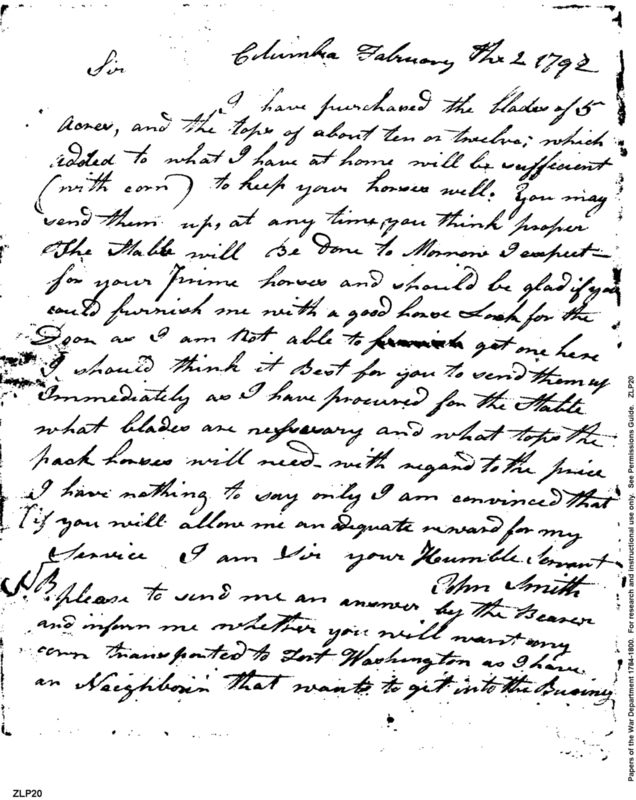 Columbia February the 2 1792
Sir
I have purchased the blades of 5
Acres, and the tops of about ten or twelve; which
added to what I have at home will be sufficient
(with corn) to keep your horses well. You may
send them up, at any time, you think proper
The Stable will Be Done to Morrow I expect
for your Prime horses and should be glad if you
could furnish me with a good horse Lock for the
Door as I am Not able to get one here
I should think it Best for you to send them up
Immediately as I have procured for the Stable
what blades are nessesary and what tops the
pack horses will need - with regard to the price
I have nothing to say only I am convinced that
if you will allow me an adequate reward for my
Service I am Sir your Houmble Servant
John Smith
NB. please to send me an answer by the Bearer
and inform me whether you will want any
corn transported to Fort Washington as I have
an Neighbour that wants to get into the Businey
ZLP20
Papers of the War Department 1784-1800. For research and instructional use only. See Permissions Guide. ZLP20